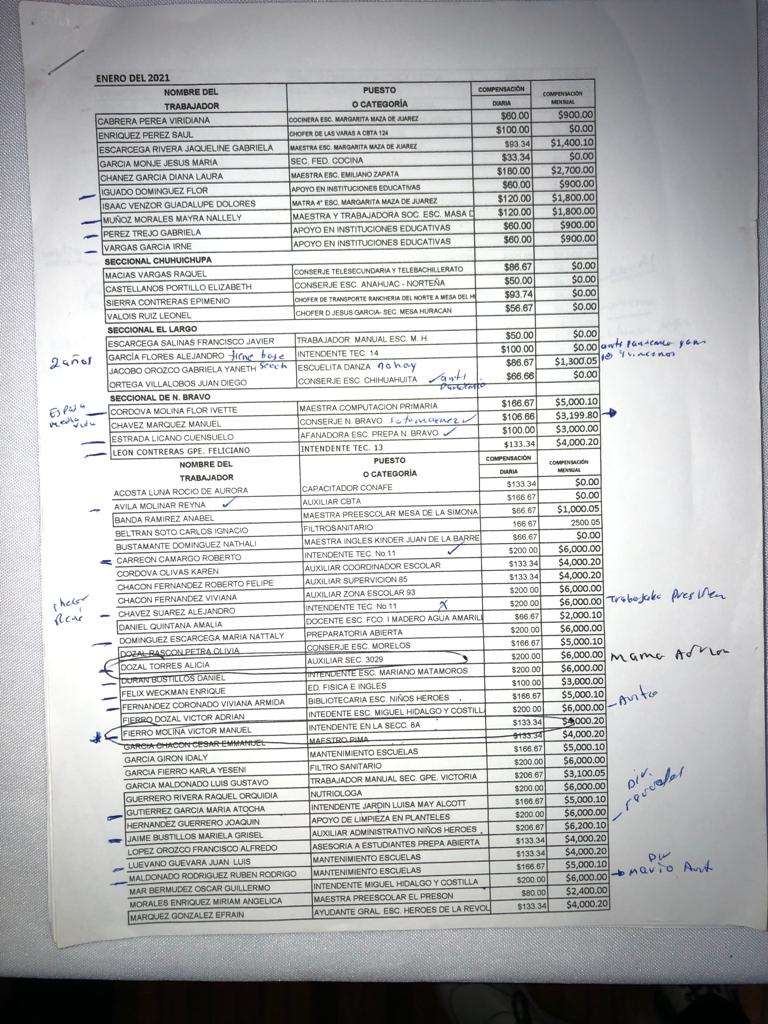 ENERO DEL 2021
NOMBRE DEL TRABAJADOR PUESTO O CATEGORÍA COMPENSACIÓN DIARIA COMPENSACIÓN MENSUAL
CABRERA PEREA VIRIDIANA COCINERA ESC. MARGARITA MAZA DE JUAREZ $60.00 $900.00
ENRIQUEZ PEREZ SAUL CHOFER DE LAS VARAS A CBTA 124 $100.00 $0.00
ESCARCEGA RIVERA JAQUELINE GABRIELA MAESTRA ESC. MARGARITA MAZA DE JUAREZ $93.34 $1,400.10
GARCIA MONJE JESUS MARIA SEC. FED. COCINA $33.34 $0.00
CHANEZ GARCIA DIANA LAURA MAESTRA ESC. EMILIANO ZAPATA $180.00 $2,700.00
IGUADO DOMINGUEZ FLOR APOYO EN INSTITUCIONES EDUCATIVAS $60.00 $900.00
ISAAC VENZOR GUADALUPE DOLORES MATRA 4° ESC. MARGARITA MAZA DE JUAREZ $120.00 $1,800.00
MUÑOZ MORALES MAYRA NALLELY MAESTRA Y TRABAJADORA SOC. ESC. MASA D $120.00 $1,800.00
PEREZ TREJO GABRIELA APOYO EN INSTITUCIONES EDUCATIVAS $60.00 $900.00
VARGAS GARCIA IRNE APOYO EN INSTITUCIONES EDUCATIVAS $60.00 $900.00
SECCIONAL CHUHUICHUPA
MACIAS VARGAS RAQUEL CONSERJE TELESECUNDARIA Y TELEBACHILLERATO $86.67 $0.00
CASTELLANOS PORTILLO ELIZABETH CONSERJE ESC. ANAHUAC - NORTEÑA $50.00 $0.00
SIERRA CONTRERAS EPIMENIO CHOFER DE TRANSPORTE RANCHERIA DEL NORTE A MESA DEL H $93.74 $0.00
VALOIS RUIZ LEONEL CHOFER D JESUS GARCIA- SEC. MESA HURACAN $56.67 $0.00
SECCIONAL EL LARGO
ESCARCEGA SALINAS FRANCISCO JAVIER TRABAJADOR MANUAL ESC. M. H $50.00 $0.00
2 años GARCÍA FLORES ALEJANDRO tiene base INTENDENTE TEC. 14 $100.00 $0.00
JACOBO OROZCO GABRIELA YANETH ESCUELITA DANZA no hay $86.67 $1,300.05
ORTEGA VILLALOBOS JUAN DIEGO CONSERJE ESC. CHIHUAHUITA $66.66 $0.00
SECCIONAL DE N. BRAVO
CORDOVA MOLINA FLOR IVETTE MAESTRA COMPUTACION PRIMARIA $166.67 $5,000.10
CHAVEZ MARQUEZ MANUEL CONSERJE N. BRAVO $106.66 $3,199.80
ESTRADA LICANO CUENSUELO AFANADORA ESC. PREPA N. BRAVO $100.00 $3,000.00
LEON CONTRERAS GPE. FELICIANO INTENDENTE TEC. 13 $133.34 $4,000.20
NOMBRE DEL TRABAJADOR PUESTO O CATEGORÍA COMPENSACIÓN DIARIA COMPENSACIÓN MENSUAL
ACOSTA LUNA ROCIO DE AURORA CAPACITADOR CONAFE $133.34 $0.00
AVILA MOLINAR REYNA AUXILIAR CBTA $166.67 $0.00
BANDA RAMIREZ ANABEL MAESTRA PREESCOLAR MESA DE LA SIMONA $66.67 $1,000.05
BELTRAN SOTO CARLOS IGNACIO FILTROSANITARIO 166.67 2500.05
BUSTAMANTE DOMINGUEZ NATHALI MAESTRA INGLES KINDER JUAN DE LA BARRE $66.67 $0.00
CARREON CAMARGO ROBERTO INTENDENTE TEC. No.11 $200.00 $6,000.00
CORDOVA OLIVAS KAREN AUXILIAR COORDINADOR ESCOLAR $133.34 $4,000.20
CHACON FERNANDEZ ROBERTO FELIPE AUXILIAR SUPERVICION 85 $133.34 $4,000.20
CHACON FERNANDEZ VIVIANA AUXILIAR ZONA ESCOLAR 93 $200.00 $6,000.00
CHAVEZ SUAREZ ALEJANDRO INTENDENTE TEC. No.11 $200.00 $6,000.00
DANIEL QUINTANA AMALIA DOCENTE ESC. FCO. I MADERO AGUA AMARILL $66.67 $2,000.10
DOMINGUEZ ESCARCEGA MARIA NATTALY PREPARATORIA ABIERTA $200.00 $6,000.00
DOZAL RASCON PETRA OLIVIA CONSERJE ESC. MORELOS $166.67 $5,000.10
DOZAL TORRES ALICIA AUXILIAR SEC. 3029 $200.00 $6,000.00
DURAN BUSTILLOS DANIEL INTENDENTE ESC. MARIANO MATAMOROS $200.00 $6,000.00
FELIX WECKMAN ENRIQUE ED. FISICA E INGLES $100.00 $3,000.00
FERNANDEZ CORONADO VIVIANA ARMIDA BIBLIOTECARIA ESC. NIÑOS HEROES $166.67 $5,000.10
FIERRO DOZAL VICTOR ADRIAN INTEDENTE ESC. MIGUEL HIDALGO Y COSTILL $200.00 $6,000.00
FIERRO MOLINA VICTOR MANUEL INTENDENTE EN LA SECC. 8A $133.34 $4,000.20
GARCIA CHACON CESAR EMMANUEL MAESTRO PIMA $133.34 $4,000.20
GARCIA GIRON IDALY MANTENIMIENTO ESCUELAS $166.67 $5,000.10
GARCIA FIERRO KARLA YESENI FILTRO SANITARIO $200.00 $6,000.00
GARCIA MALDONADO LUIS GUSTAVO TRABAJADOR MANUAL SEC. GPE. VICTORIA $206.67 $3,100.05
GUERRERO RIVERA RAQUEL ORQUIDIA NUTRIOLOGA $200.00 $6,000.00
GUTIERREZ GARCIA MARIA ATOCHA INTENDENTE JARDIN LUISA MAY ALCOTT $166.67 $5,000.10
HERNANDEZ GUERRERO JOAQUIN APOYO DE LIMPIEZA EN PLANTELES $200.00 $6,000.00
JAIME BUSTILLOS MARIELA GRISEL AUXILIAR ADMINISTRATIVO NIÑOS HEROES $206.67 $6,200.10
LOPEZ OROZCO FRANCISCO ALFREDO ASESORIA A ESTUDIANTES PREPA ABIERTA $133.34 $4,000.20
LUEVANO GUEVARA JUAN LUIS MANTENIMIENTO ESCUELAS $133.34 $4,000.20
MALDONADO RODRIGUEZ RUBEN RODRIGO MANTENIMIENTO ESCUELAS $166.67 $5,000.10
MAR BERMUDEZ OSCAR GUILLERMO INTENDENTE MIGUEL HIDALGO Y COSTILLA $200.00 $6,000.00
MORALES ENRIQUEZ MIRIAM ANGELICA MAESTRA PREESCOLAR EL PRESON $80.00 $2,400.00
MARQUEZ GONZALEZ EFRAIN AYUDANTE GRAL. ESC. HEROES DE LA REVOL $133.34 $4,000.20